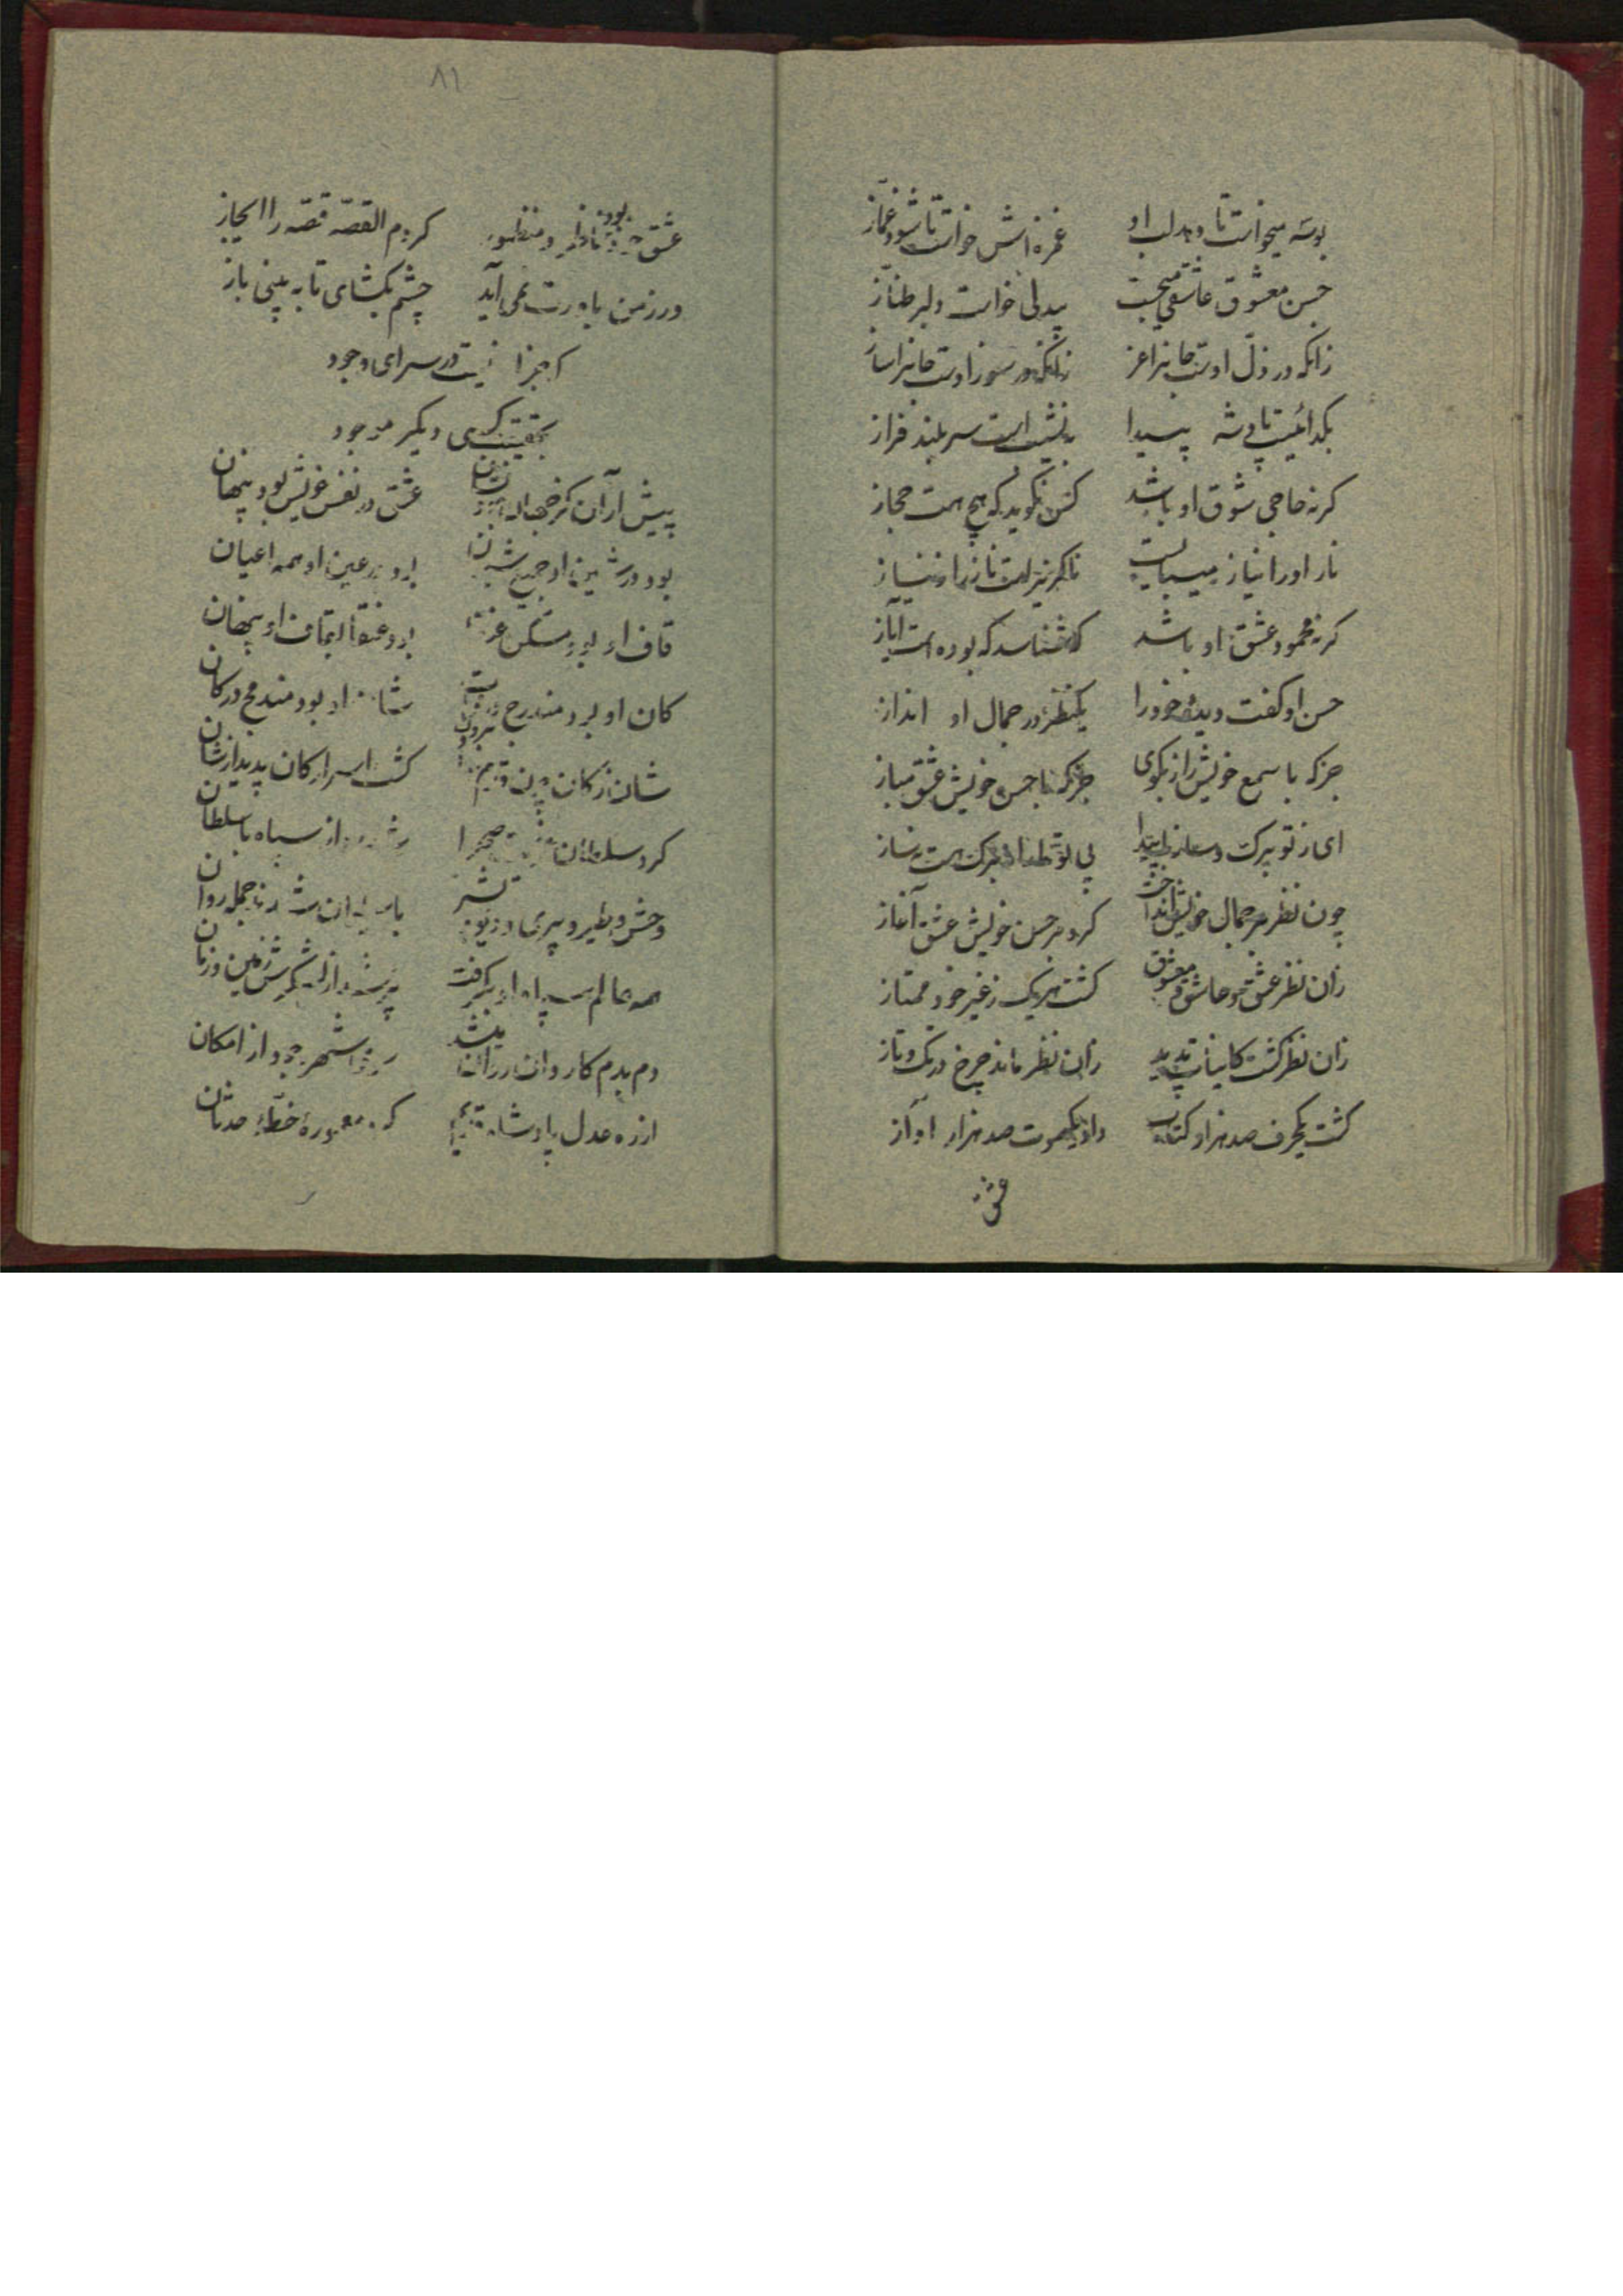 بوسه میخواست تا دهد لب او غمزه اش خواست تا شود غماز
حسن معشوق عاشقی میجست بیدلی خواست دلبر طناز
زانکه در ذل اوست جانرا عز زانکه در سوز اوست جانرا ساز
بگدائیست پادشه پیدا به نشیب است سربلند فراز
گر نه حاجی شوق او باشد کس نگوید که هیچ هست حجاز
ناز او را نیاز میبایست ناگزیر است ناز را ز نیاز
گر نه محمود عشق او باشد که شناسد که بوده است ایاز
حسن او گفت دیدهٔ خود را یکنظر در جمال او انداز
جز که با سمع خویش راز مگوی جز که با حسن خویش عشق مباز
ای ز تو برگ و ساز ما پیدا بی تو ما را نه برگ هست نه ساز
چون نظر بر جمال خویش انداخت کرد بر حسن خویش عشق آغاز
زان نظر عشق و عاشق و معشوق گشت هر یک ز غیر خود ممتاز
زان نظر گشت کاینات پدید زان نظر ماند چرخ در تک و تاز
گشت یکحرف صد هزار کتاب داد یکصوت صد هزار آواز
عشق
۸۱
عشق بود ناظر و منظور کردم القصه قصه را ایجاز
ور ز من باورت نمی آید چشم بگشای تا به بینی باز
که جز او نیست در سرای وجود
بحقیقت کسی دیگر موجود
پیش از آن کز جهان نشان عشق در نفس خویش بود پنهان
بود در او جمیع شئون بود در عین او همه اعیان
قاف او بود مسکن بود عنقا بقاف او پنهان
کان او بود مندرج شان او بود مندمج در کان
شان ز کان چون گشت اسرار کان پدید از شان
کرد سلطان صحرا از سپاه با سلطان
وحش و طیر و پری و دیو با شد تا جمله روان
همه عالم سپاه او بگرفت پر شد از لشکرش زمین و زمان
دم بدم کاروان روان شهر وجود از امکان
از ره عدل پادشاه قدیم معمورهٔ خطهٔ حدثان